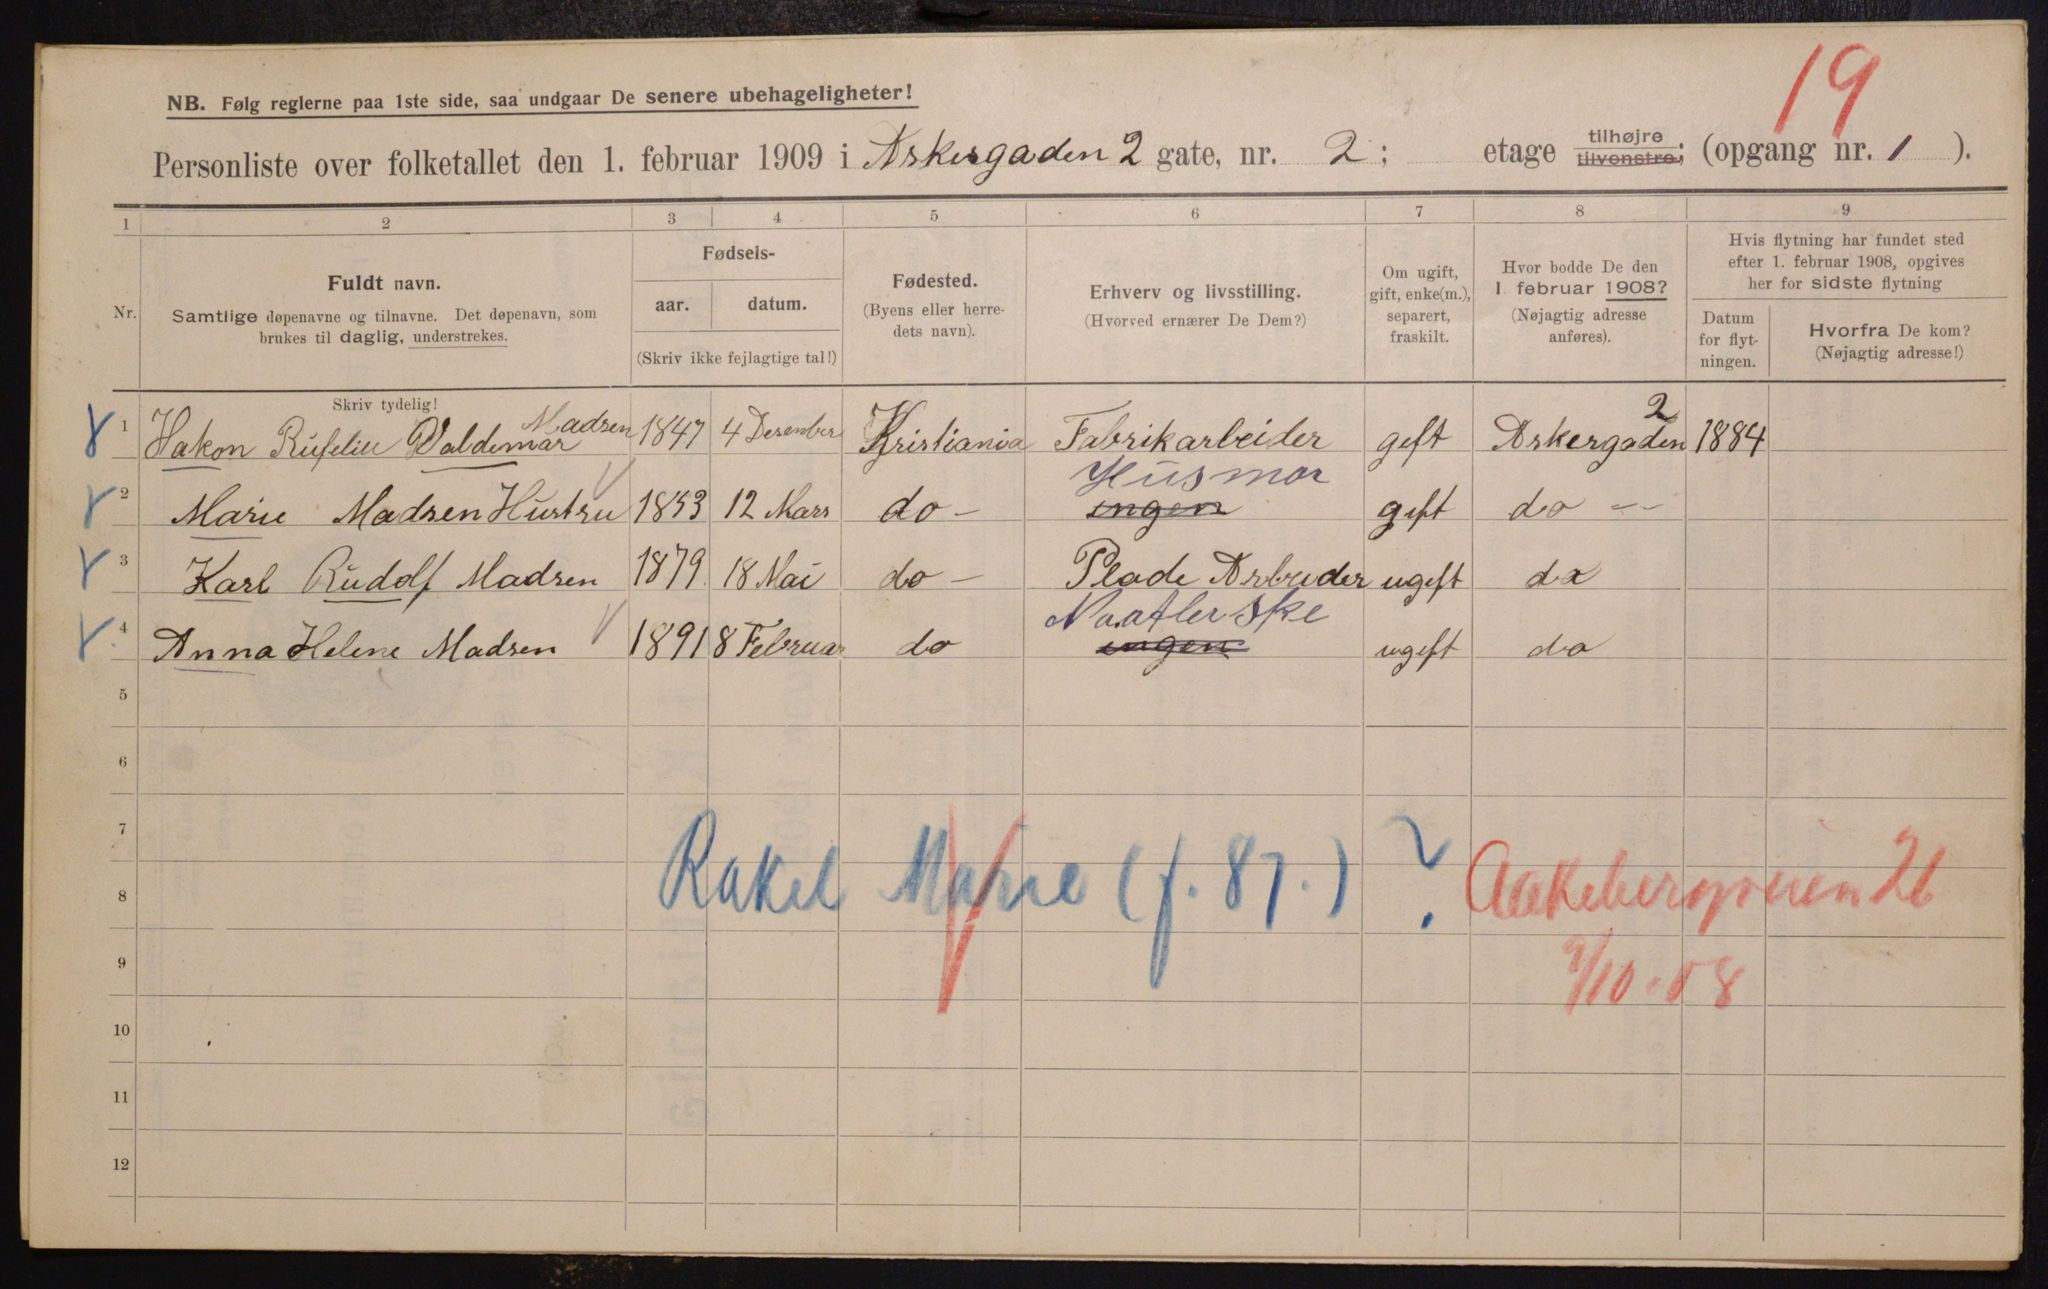 19
NB. Følg reglerne paa 1ste side, saa undgaar De senere ubehageligheter!
Personliste over folketallet den 1. februar 1909 i Askergaden 2 gate, nr. 2; etage tilhøjre tilvenstre; (opgang nr. 1).
1 2 3 4 5 6 7 8 9
Nr.
Fuldt navn.
Samtlige døpenavne og tilnavne. Det døpenavn, som
brukes til daglig, understrekes.
Skriv tydelig!
Fødsels-
aar. datum.
(Skriv ikke fejlagtige tal!)
Fødested.
(Byens eller herre-
dets navn).
Erhverv og livsstilling.
(Hvorved ernærer De Dem?)
Om ugift,
gift, enke(m.),
separert,
fraskilt.
Hvor bodde De den
1. februar 1908?
(Nøjagtig adresse
anføres).
Hvis flytning har fundet sted
efter 1. februar 1908, opgives
her for sidste flytning
Datum
for flyt-
ningen.
Hvorfra De kom?
(Nøjagtig adresse!)
1 Hakon Rufeliu Valdemar Madsen 1847 4 Desember Kristiania Fabrikarbeider geft Askergaden 2 1884
2 Marie Madsen Hustru 1853 12 Mars do - ingen Husmor geft do -
3 Karl Rudolf Madsen 1879 18 Mai do - Plade Arbeider ugeft do
4 Anna Helene Madsen 1891 8 Februar do ingen Naatlerske ugeft do
5
6
7
8 Rakel Marie (f. 87.) ? Aakebergveien 26
9 9/10-08
10
11
12